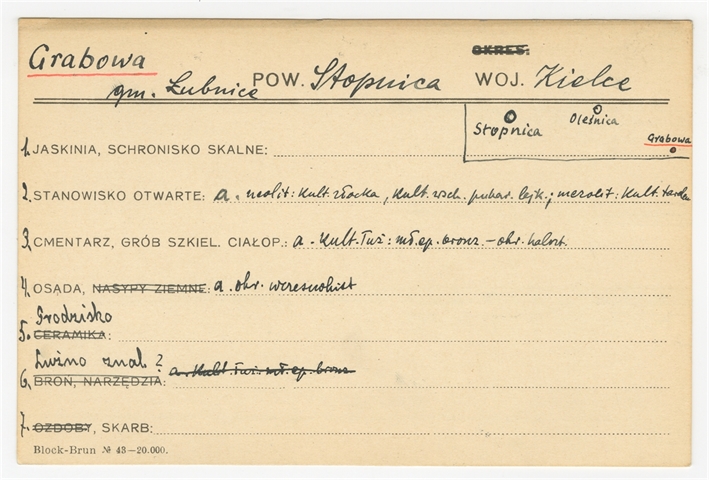 Grabowa
OKRES:
gm. Łubnice POW. Stopnica WOJ. Kielce
Stopnica
Oleśnica
Grabowa
1. JASKINIA, SCHRONISKO SKALNE:
2. STANOWISKO OTWARTE: a. neolit: Kult. złocka, Kult. wsch. puhar. lejk.; mezolit: Kult. tarden
3. CMENTARZ, GRÓB SZKIEL. CIAŁOP.: a. Kult. Łuż: mł. ep. bronz. – okr. halszt.
4. OSADA, NASYPY ZIEMNE: a. okr. wczesnohist
Grodzisko
5. CERAMIKA:
Luźno znal?
6. BROŃ, NARZĘDZIA: a. Kult. Łuż: mł. ep. bronz
7. OZDOBY, SKARB:
Block-Brun № 43—20.000.